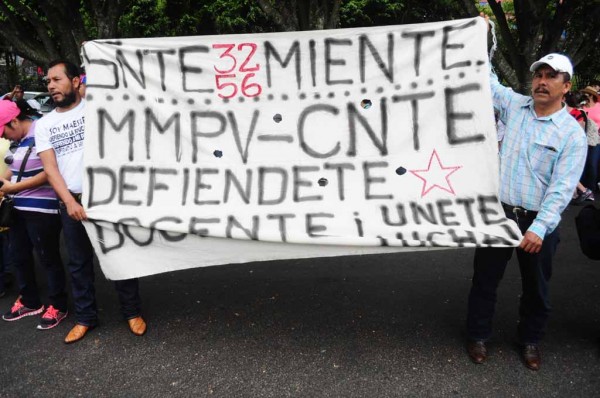 SNTE 32 56 MIENTE
MMPV-CNTE
DEFIENDETE
DOCENTE ¡ UNETE
LUCHA
SOY MAES